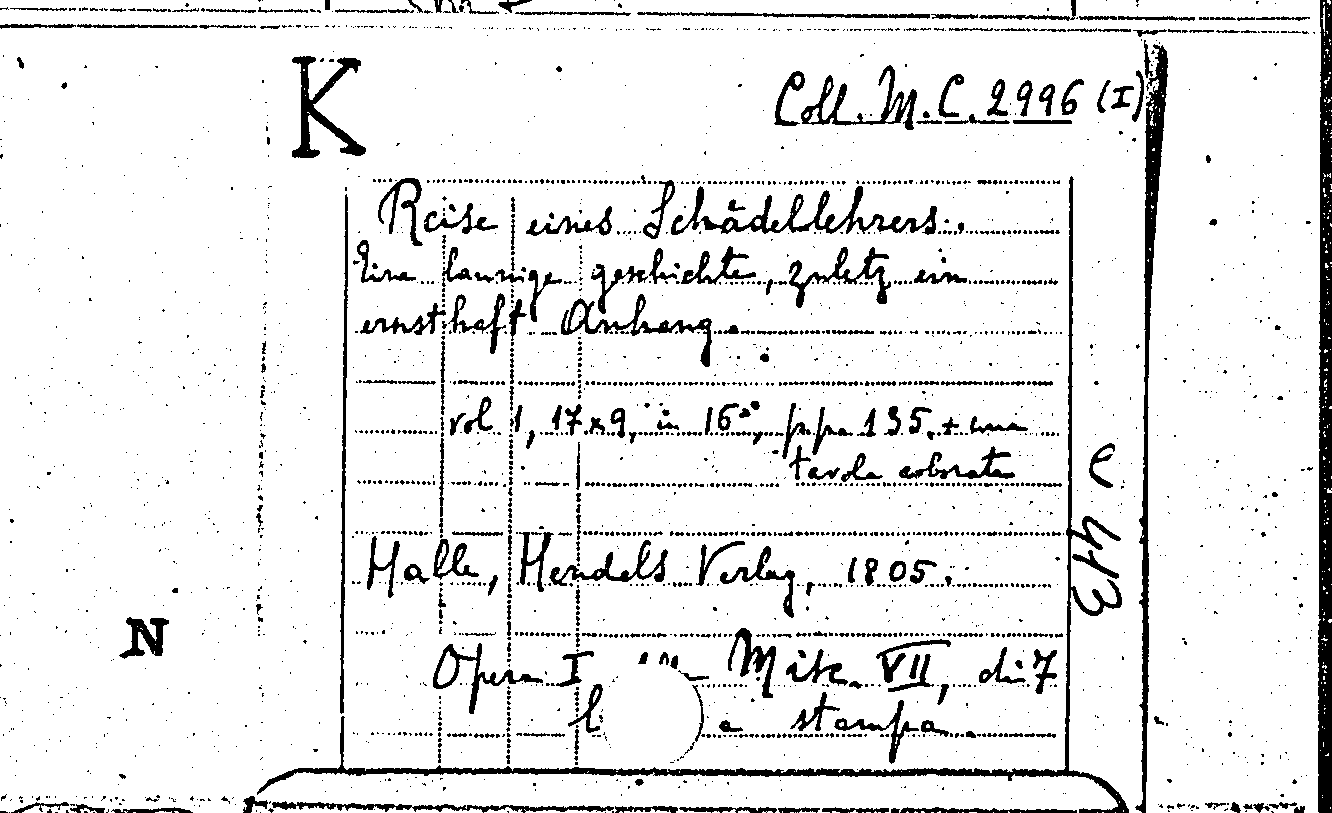 K
Coll. M. C. 2996 (I)
Reise eines Schädellehrers.
Eine launige geschichte, zuletz ein
ernsthaft Anhang.
vol 1, 17x9, in 16°, pp. 135. + una
tavola colorata
e 413
Halle, Hendels Verlag, 1805.
N
Opera I Misc. VII, di 7
a stampa.